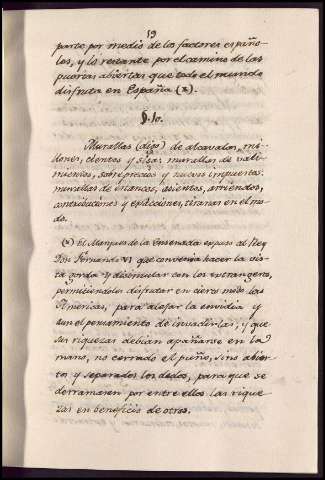 19
parte por medio de los factores españo-
les, y lo restante por el camino de las
puertas abiertas que todo el mundo
disfruta en España (x).
§. 10.
Murallas (digo) de alcavalas, mi-
llones, cientos y sisas: murallas de vali-
mientos, sobreprecios y nuevos impuestos:
murallas de estancos, asientos, arriendos,
contribuciones y exacciones, tiranas en el mo-
do.
(x) El Marques de la Ensenada expuso al Rey
Dn. Fernando VI que convenia hacer la vis-
ta gorda y disimular con los extrangeros,
permitiendoles disfrutar en cierto modo las
Americas, para alejar la envidia y
aun el pensamiento de invadirlas; y que
sus riquezas debian apañarse en la
mano, no cerrado el puño, sino abier-
tos y separados los dedos, para que se
derramasen por entre ellos las rique-
zas en beneficio de otros.